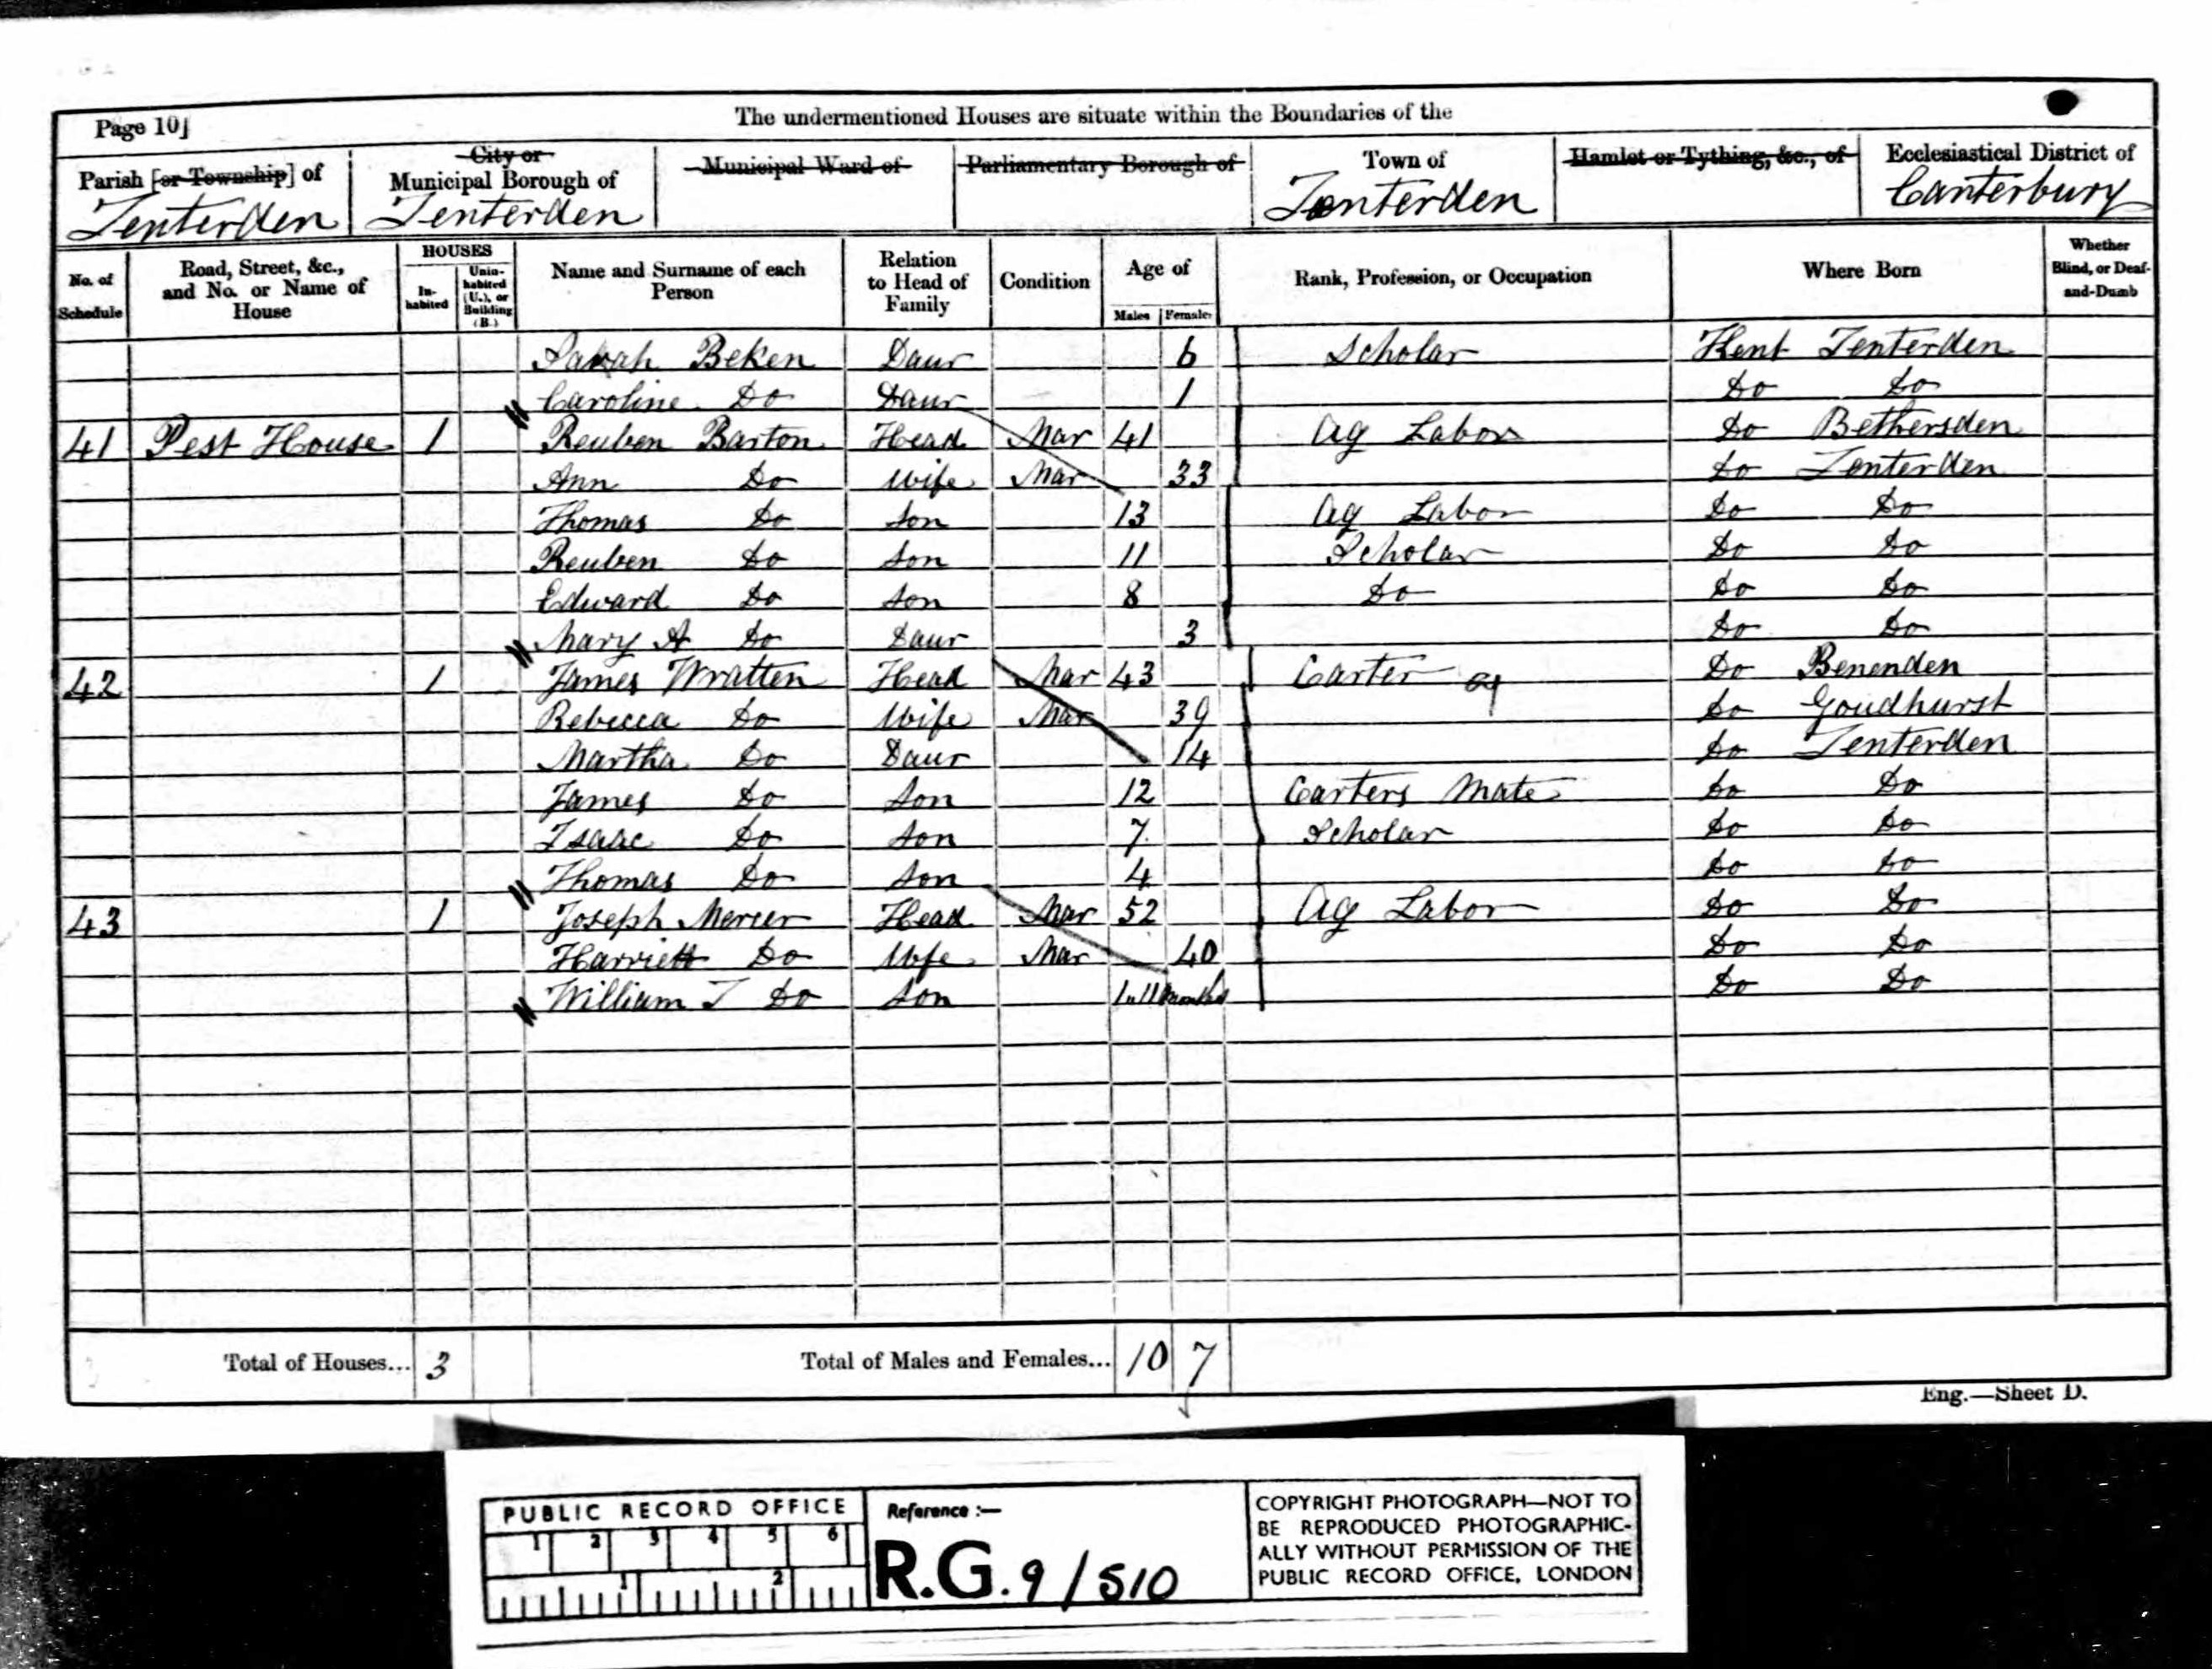 Page 10]
The undermentioned Houses are situate within the Boundaries of the
Parish [or Township] of Tenterden
City or Municipal Borough of Tenterden
Municipal Ward of
Parliamentary Borough of
Town of Tenterden
Hamlet or Tything, &c., of
Ecclesiastical District of Canterbury
No. of Schedule
Road, Street, &c., and No. or Name of House
HOUSES
In-habited
Unin-habited (U.), or Building (B.)
Name and Surname of each Person
Relation to Head of Family
Condition
Age of
Males
Females
Rank, Profession, or Occupation
Where Born
Whether Blind, or Deaf-and-Dumb
Sarah Beken Daur 6 Scholar Kent Tenterden
Caroline Do Daur 1 Do Do
41 Pest House 1 Reuben Barton Head Mar 41 Ag Labor Do Bethersden
Ann Do Wife Mar 33 Do Tenterden
Thomas Do Son 13 Ag Labor Do Do
Reuben Do Son 11 Scholar Do Do
Edward Do Son 8 Do Do Do
Mary A Do Daur 3 Do Do
42 1 James Wratten Head Mar 43 Carter ag Do Benenden
Rebecca Do Wife Mar 39 Do Goudhurst
Martha Do Daur 14 Do Tenterden
James Do Son 12 Carters Mate Do Do
Isaac Do Son 7 Scholar Do Do
Thomas Do Son 4 Do Do
43 1 Joseph Mercer Head Mar 52 Ag Labor Do Do
Harriett Do Wife Mar 40 Do Do
William T Do Son 11 months Do Do
Total of Houses... 3
Total of Males and Females... 10 7
Eng.—Sheet D.
PUBLIC RECORD OFFICE
1 2 3 4 5 6
1 2
Reference :—
R.G. 9/510
COPYRIGHT PHOTOGRAPH—NOT TO
BE REPRODUCED PHOTOGRAPHIC-
ALLY WITHOUT PERMISSION OF THE
PUBLIC RECORD OFFICE, LONDON